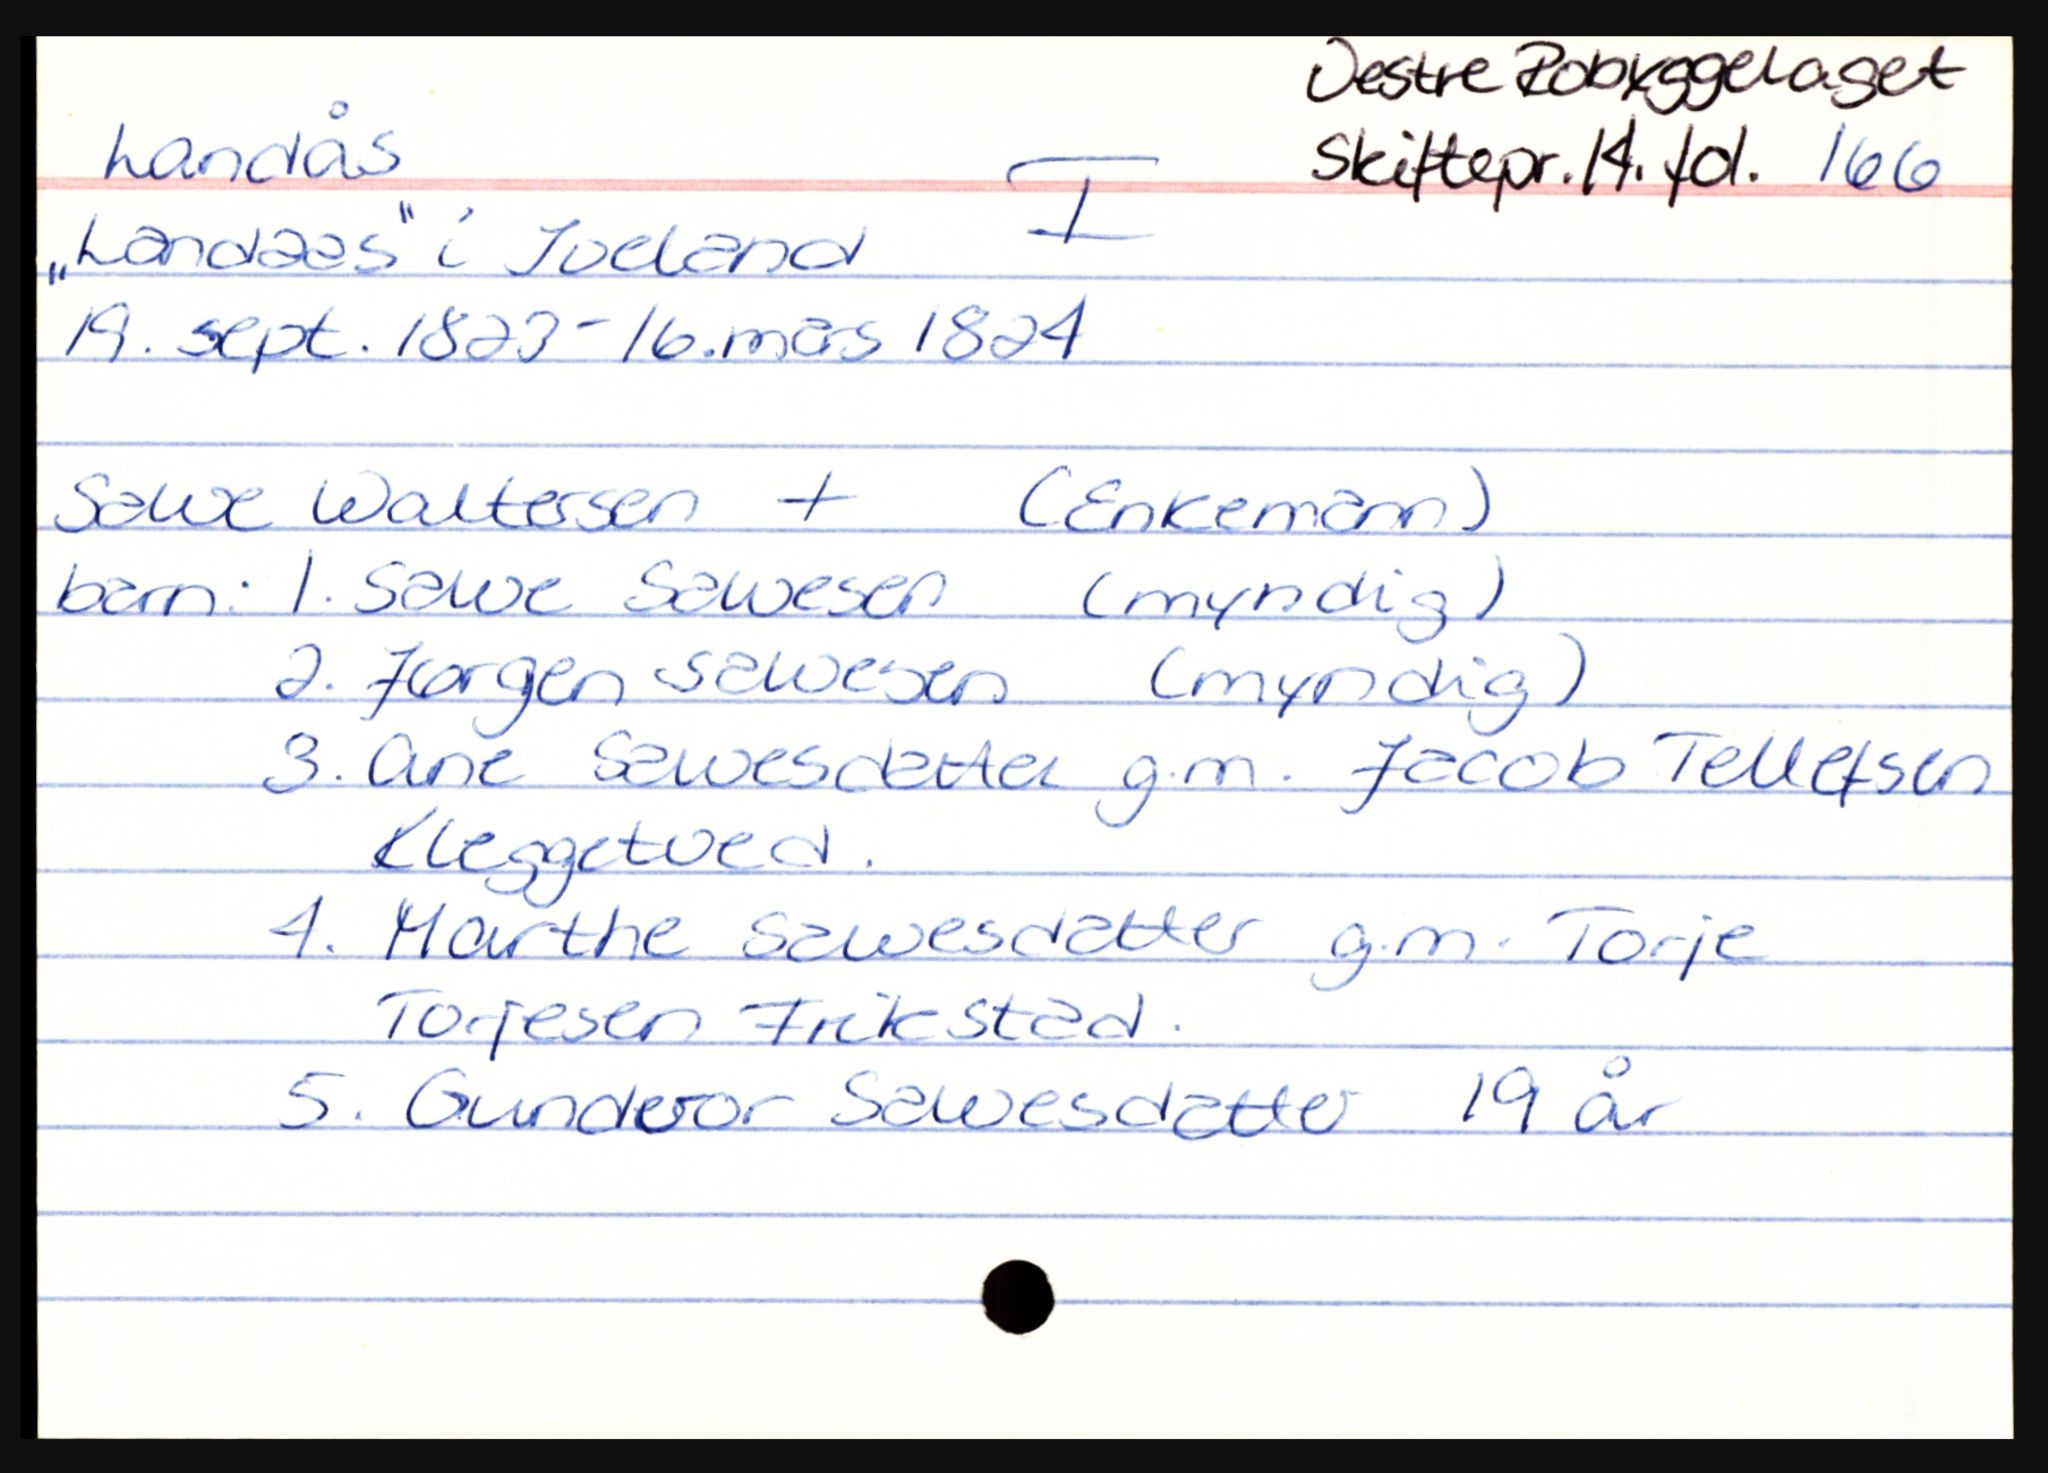 Vestre Robyggelaget
Landås I Skiftepr. 14. fol. 166
„Landaas" i Iveland
19. sept. 1823 - 16. mars 1824
Salve Waltersen + (Enkemann)
barn: 1. Salve Salvesen (myndig)
2. Jørgen Salvesen (myndig)
3. Ane Salvesdatter g.m. Jacob Tellefsen
Kleggetved.
4. Marthe Salvesdatter g.m. Torje
Torjesen Frikstad.
5. Gunderor Salvesdatter 19 år